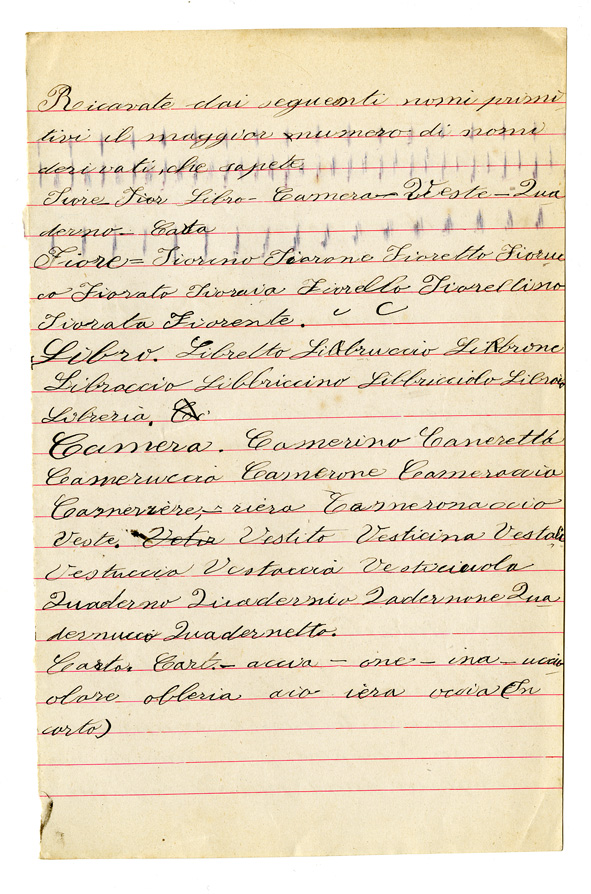 Ricavate dai seguenti nomi primi
tivi il maggior numero di nomi
derivati, che sapete.
Fiore Fior Libro - Camera - Veste - Qua
derno - Carta
Fiore = Fiorino Fiorone Fioretto Fioruc
co Fiorato Fioraia Fiorello Fiorellino
Fiorata Fiorente. C
Libro. Libretto Libruccio Librone
Libraccio Libbriccino Libbricciolo Libraio
Libreria.
Camera. Camerino Cameretta
Cameruccia Camerone Cameraccia
Cameriere, - riera Cameronaccio
Veste. Vestito Vesticina Vestali
Vestuccia Vestaccia Vesticciuola
Quaderno Quadernio Qadernone Qua
dernucco Quadernetto.
Carta. Cart. - accia - one - ina - uccia
olare olleria aio iera occia (In
carto)